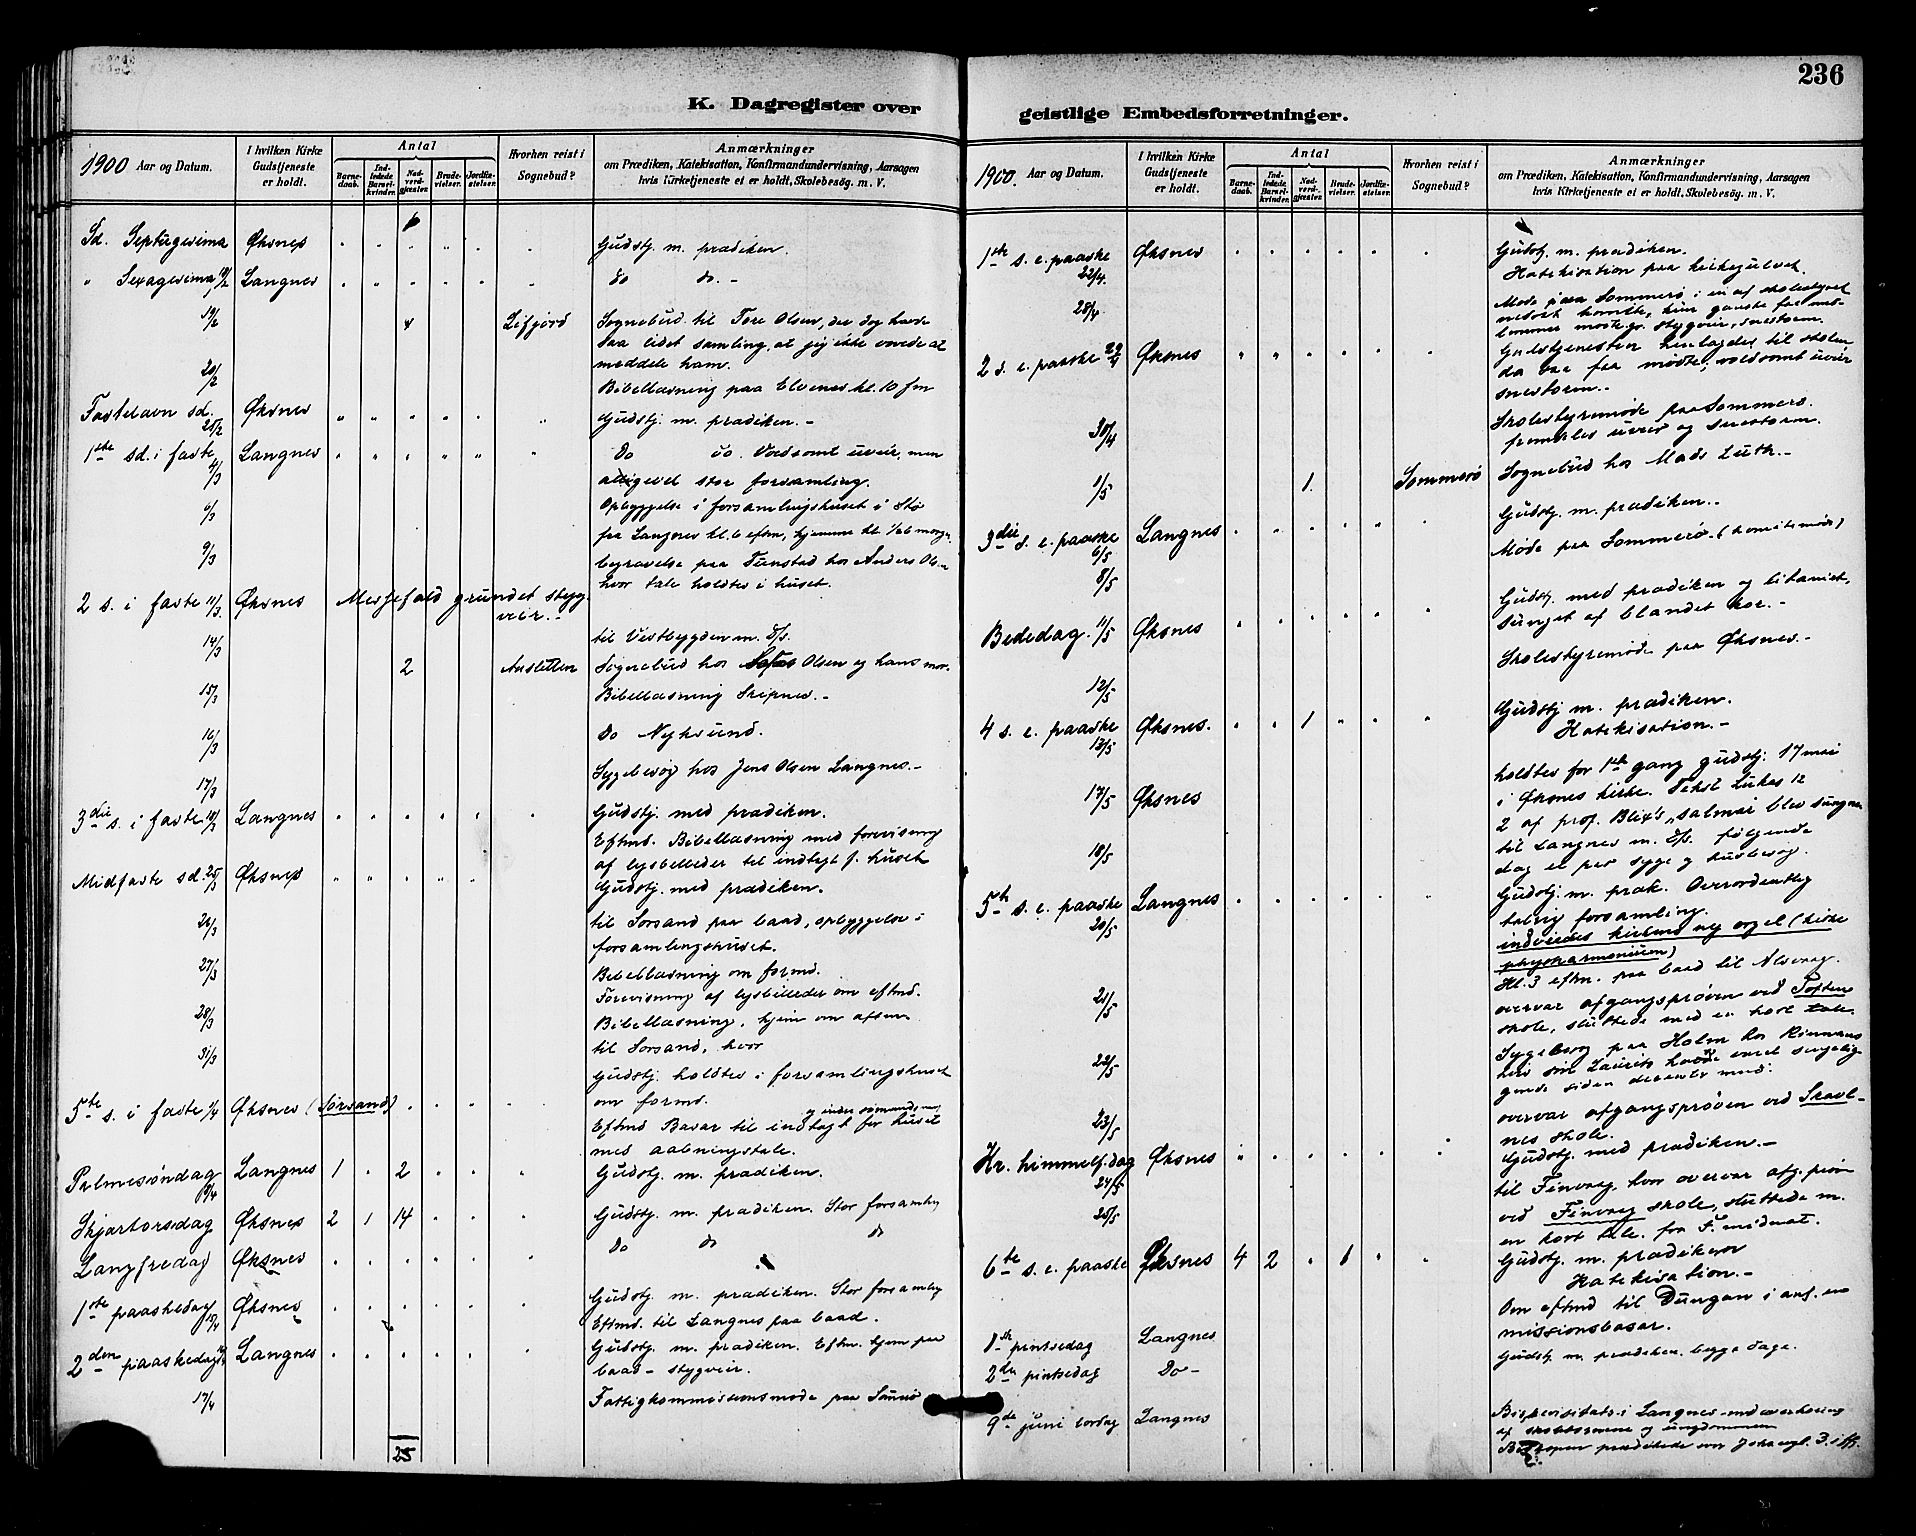 236
K. Dagregister over
geistlige Embedsforretninger.
1900 Aar og Datum.
I hvilken Kirke Gudstjeneste er holdt.
Antal
Barnedaab.
Indledede Barselkvinder.
Nadverdgjæster.
Brudevielser.
Jordfæstelser.
Hvorhen reist i Sognebud?
Anmærkninger
om Prædiken, Katekisation, Konfirmandundervisning, Aarsagen
hvis Kirketjeneste ei er holdt, Skolebesøg. m. V.
Sd. Septuagesima Øksnes " " " " " " Gudstj. m. prædiken.
" Sexagesima 18/2 Langnes " " " " " " Do do. -
19/2 4 Lifjord Sognebud til Tore Olsen, der dog havde
saa lidet samling, at jeg ikke vovede at
meddele ham.
20/2 Bibellæsning paa Elvenes kl. 10 fm
Fastelavn sd. 25/2 Øksnes " " " " " " Gudstj. m. prædiken. -
1ste sd. i faste 4/3 Langnes " " " " " " Do do. Voldsomt uveir, men
alligevel stor forsamling.
6/3 Opbyggelse i forsamlingshuset i Stø
fra Langnes kl. 6 eftm, hjemme kl. 1/2 6 morg.
9/3 begravelse paa Tunstad hos Anders Ols-
hvor tale holdtes i huset.
2 s. i faste 11/3 Øksnes Messefald grundet styg
veir. -
14/3 til Vestbygden m. D/s.
2 Ansletten Sognebud hos Olsen og hans mor.
15/3 Bibellæsning Skipnes. -
16/3 Do Nyksund.
17/3 Sygebesøg hos Jens Olsen Langnes. -
3die s. i faste 18/3 Langnes " " " " " " Gudstj. med prædiken.
Eftmd. Bibellæsning med forevisning
af lysbilleder til indtægt f. huset
Midfaste sd. 25/3 Øksnes " " " " " Gudstj. med prædiken.
26/3 til Sørsand paa baad, opbyggelse i
forsamlingshuset.
27/3 Bibellæsning om formd.
Forevisning af lysbilleder om eftmd.
28/3 Bibellæsning, hjem om aftenen
31/3 til Sørsand, hvor
Gudstj. holdtes i forsamlingshuset
5te s. i faste 1/4 Øksnes (Sørsand) " " " " om formd.
Eftmd Basar til indtægt for huset
med aabningstale.
Palmesøndag 8/4 Langnes 1 " 2 " " " Gudstj. m. prædiken.
Skjærtorsdag Øksnes 2 1 14 " " " Gudstj. m. prædiken. Stor forsamling
Langfredag Øksnes " " " " " " Do do do
1ste paaskedag 15/4 Øksnes " " " " " " Gudstj. m. prædiken. Stor forsamling
Eftmd. til Langnes paa baad.
2den paaskedag 16/4 Langnes " " " " " " Gudstj. m. prædiken. Eftm. hjem paa
baad - stygveir.
17/4 Fattigkommissionsmøde paa
25
1900. Aar og Datum.
I hvilken Kirke Gudstjeneste er holdt.
Antal
Barnedaab.
Indledede Barselkvinder.
Nadverdgjæster.
Brudevielser.
Jordfæstelser.
Hvorhen reist i Sognebud?
Anmærkninger
om Prædiken, Katekisation, Konfirmandundervisning, Aarsagen
hvis Kirketjeneste ei er holdt, Skolebesøg. m. V.
1ste s. e. paaske 22/4 Øksnes " " " " " " Gudstj. m. prædiken.
Katekisation paa kirkegulvet.
28/4 Møde paa Sommerø i en af skolestyret
nedsat komite, kun ganske faa med-
lemmer mødte gr. stygveir, snestorm.
2 s. e. paaske 29/4 Øksnes " " " " " " Gudstjenesten henlagdes til skolen
da saa faa mødte, voldsomt uveir
snestorm. -
30/4 Skolestyremøde paa Sommerø.
fremdeles uveir og snestorm.
1/5 1. Sommerø Sognebud hos Mads Luth. -
3die s. e. paaske 6/5 Langnes " " " " " " Gudstj. m. prædiken. -
8/5 Møde paa Sommerø. (komitemøde)
Bededag. 11/5 Øksnes " " " " " " Gudstj. med prædiken og litaniet,
sunget af blandet kor. -
12/5 Skolestyremøde paa Øksnes. -
4 s. e. paaske 13/5 Øksnes. " " 1 " " " Gudstj. m. prædiken.
Katekisation. -
17/5 Øksnes holdtes for 1ste gang gudstj. 17 mai
i Øksnes kirke. Tekst Lukas 12
2 af prof. Blix's salmer blev sungne
18/5 til Langnes m. D/s. følgende
dag et par syge og husbesøg.
5te s. e. paaske 20/5 Langnes " " " " " " Gudstj. m. præk. Overordentlig
talrig forsamling.
indviedes kirkens ny orgel (kirke
physharmonium)
Kl. 3 eftm. paa baad til Alsvaag.
21/5 overvar afgangsprøven ved Toften
skole, sluttede med en kort tale.
22/5 Sygebesøg paa Holm hos
siden december mnd.
23/5 overvar afgangsprøven ved Skavl-
nes skole.
Kr. himmelf. dag 24/5 Øksnes " " " " " " Gudstj. med prædiken. -
25/5 til Finvaag, hvor overvar afg. prøve
ved Finvaag skole, sluttede m.
en kort tale.
6te s. e. paaske Øksnes 4 2 " 1 " " Gudstj. m. prædiken
Katekisation. -
Om eftmd til Dungan i anl. en
missionsbasar.
1ste pintsedag Langnes Gudstj. m. prædiken begge dage.
2den pintsedag Do -
9de juni lørdag Langnes Bispevisitats i Langnes
og ungdommen
Biskopen prædikede over Joh. evgl. 3.